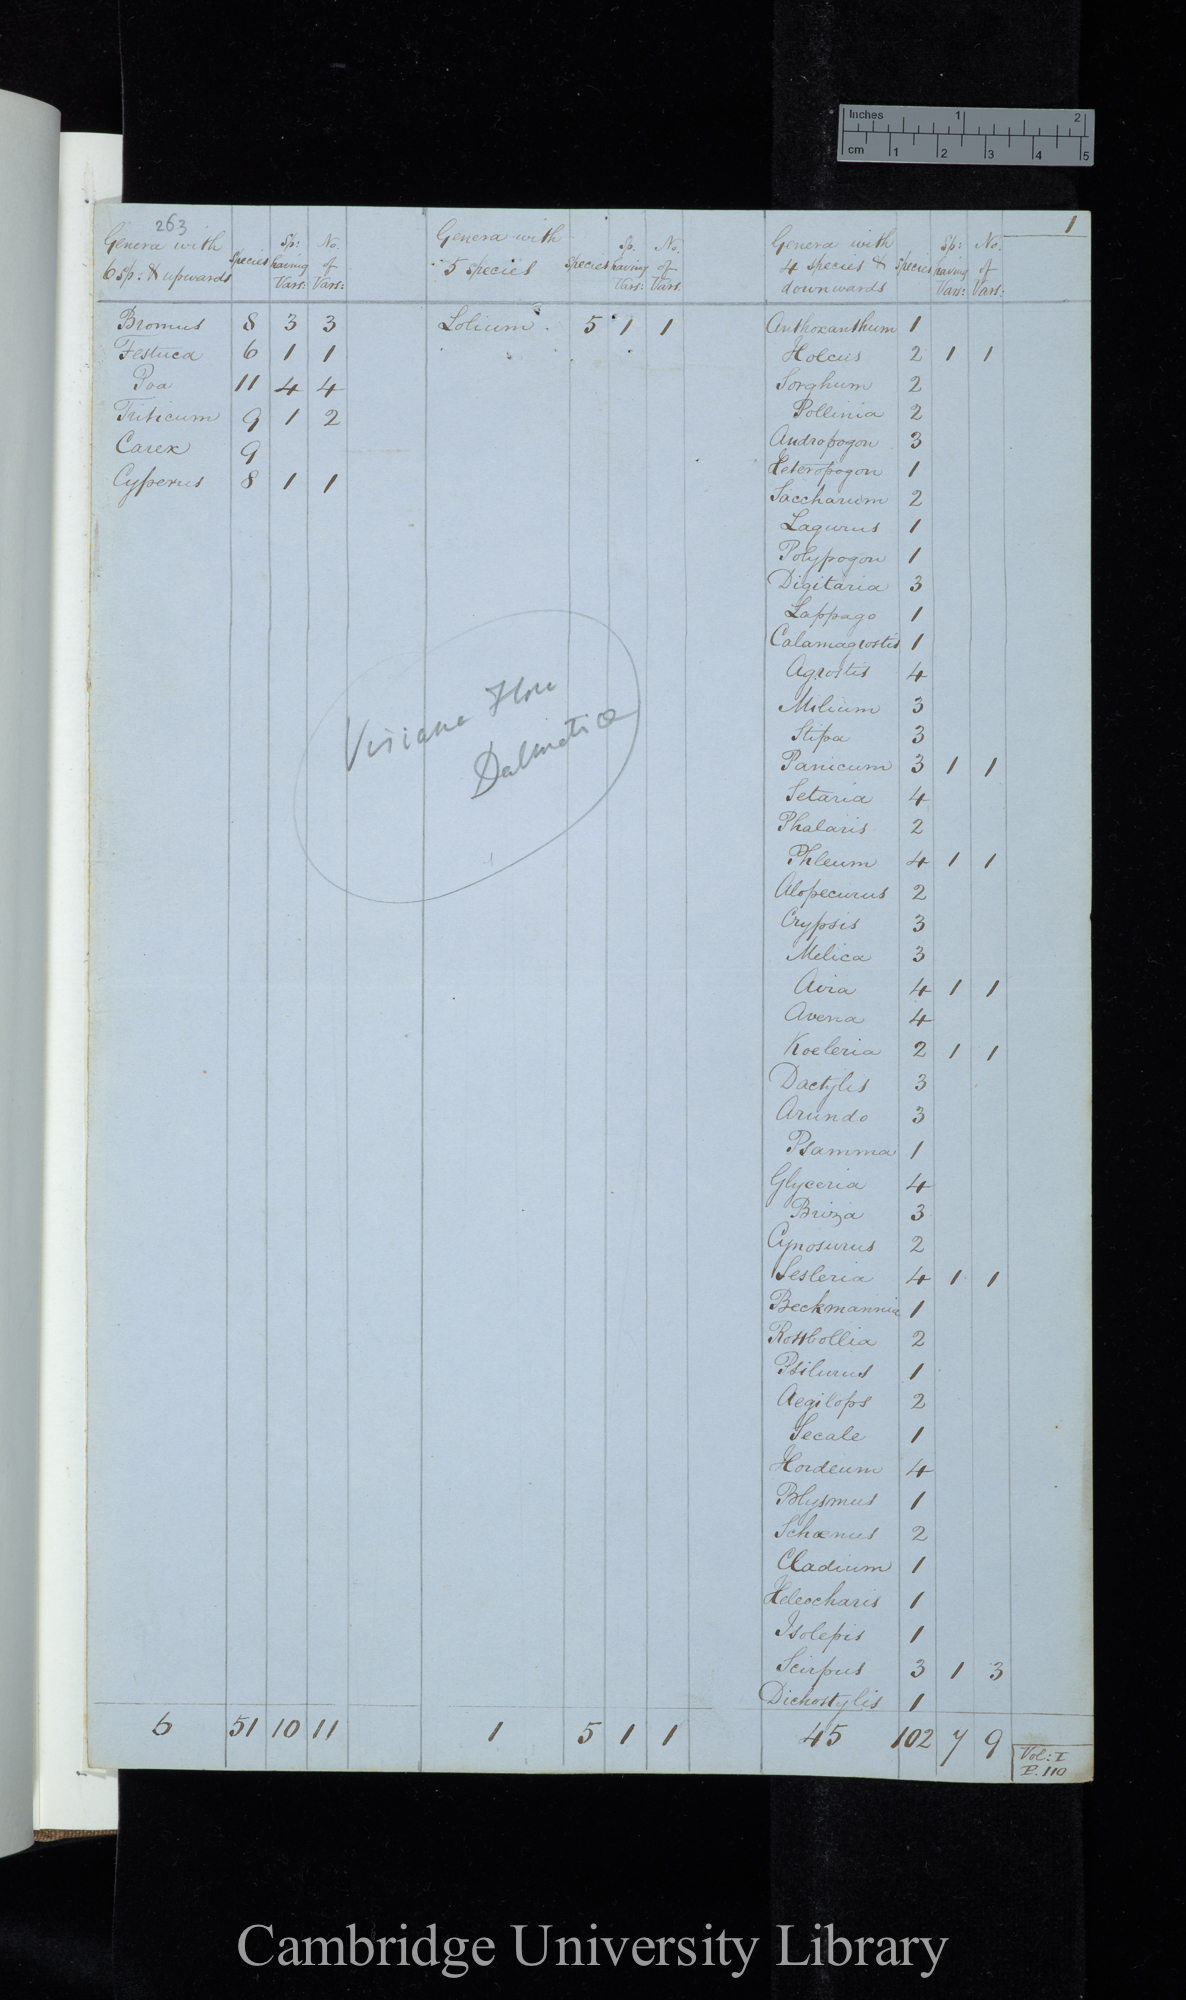 Inches 1 2
cm 1 2 3 4 5
263
1
Genera with 6 sp: & upwards Species Sp: having Vars: No. of Vars:
Bromus 8 3 3
Festuca 6 1 1
Poa 11 4 4
Triticum 9 1 2
Carex 9
Cyperus 8 1 1
6 51 10 11
Genera with 5 species Species Sp. having Vars: No. of Vars.
Lolium. 5 1 1
1 5 1 1
Visiana Flora
Dalmatica
Genera with 4 species & downwards Species Sp: having Vars: No. of Vars:
Anthoxanthum 1
Holcus 2 1 1
Sorghum 2
Pollinia 2
Andropogon 3
Heteropogon 1
Saccharum 2
Lagurus 1
Polypogon 1
Digitaria 3
Lappago 1
Calamagrostis 1
Agrostis 4
Milium 3
Stipa 3
Panicum 3 1 1
Setaria 4
Phalaris 2
Phleum 4 1 1
Alopecurus 2
Crypsis 3
Melica 3
Aira 4 1 1
Avena 4
Koeleria 2 1 1
Dactylis 3
Arundo 3
Psamma 1
Glyceria 4
Briza 3
Cynosurus 2
Sesleria 4 1 1
Beckmannia 1
Rottbollia 2
Psilurus 1
Aegilops 2
Secale 1
Hordeum 4
Blysmus 1
Schœnus 2
Cladium 1
Heleocharis 1
Isolepis 1
Scirpus 3 1 3
Dichostylis 1
45 102 7 9
Vol: I
P. 110
Cambridge University Library